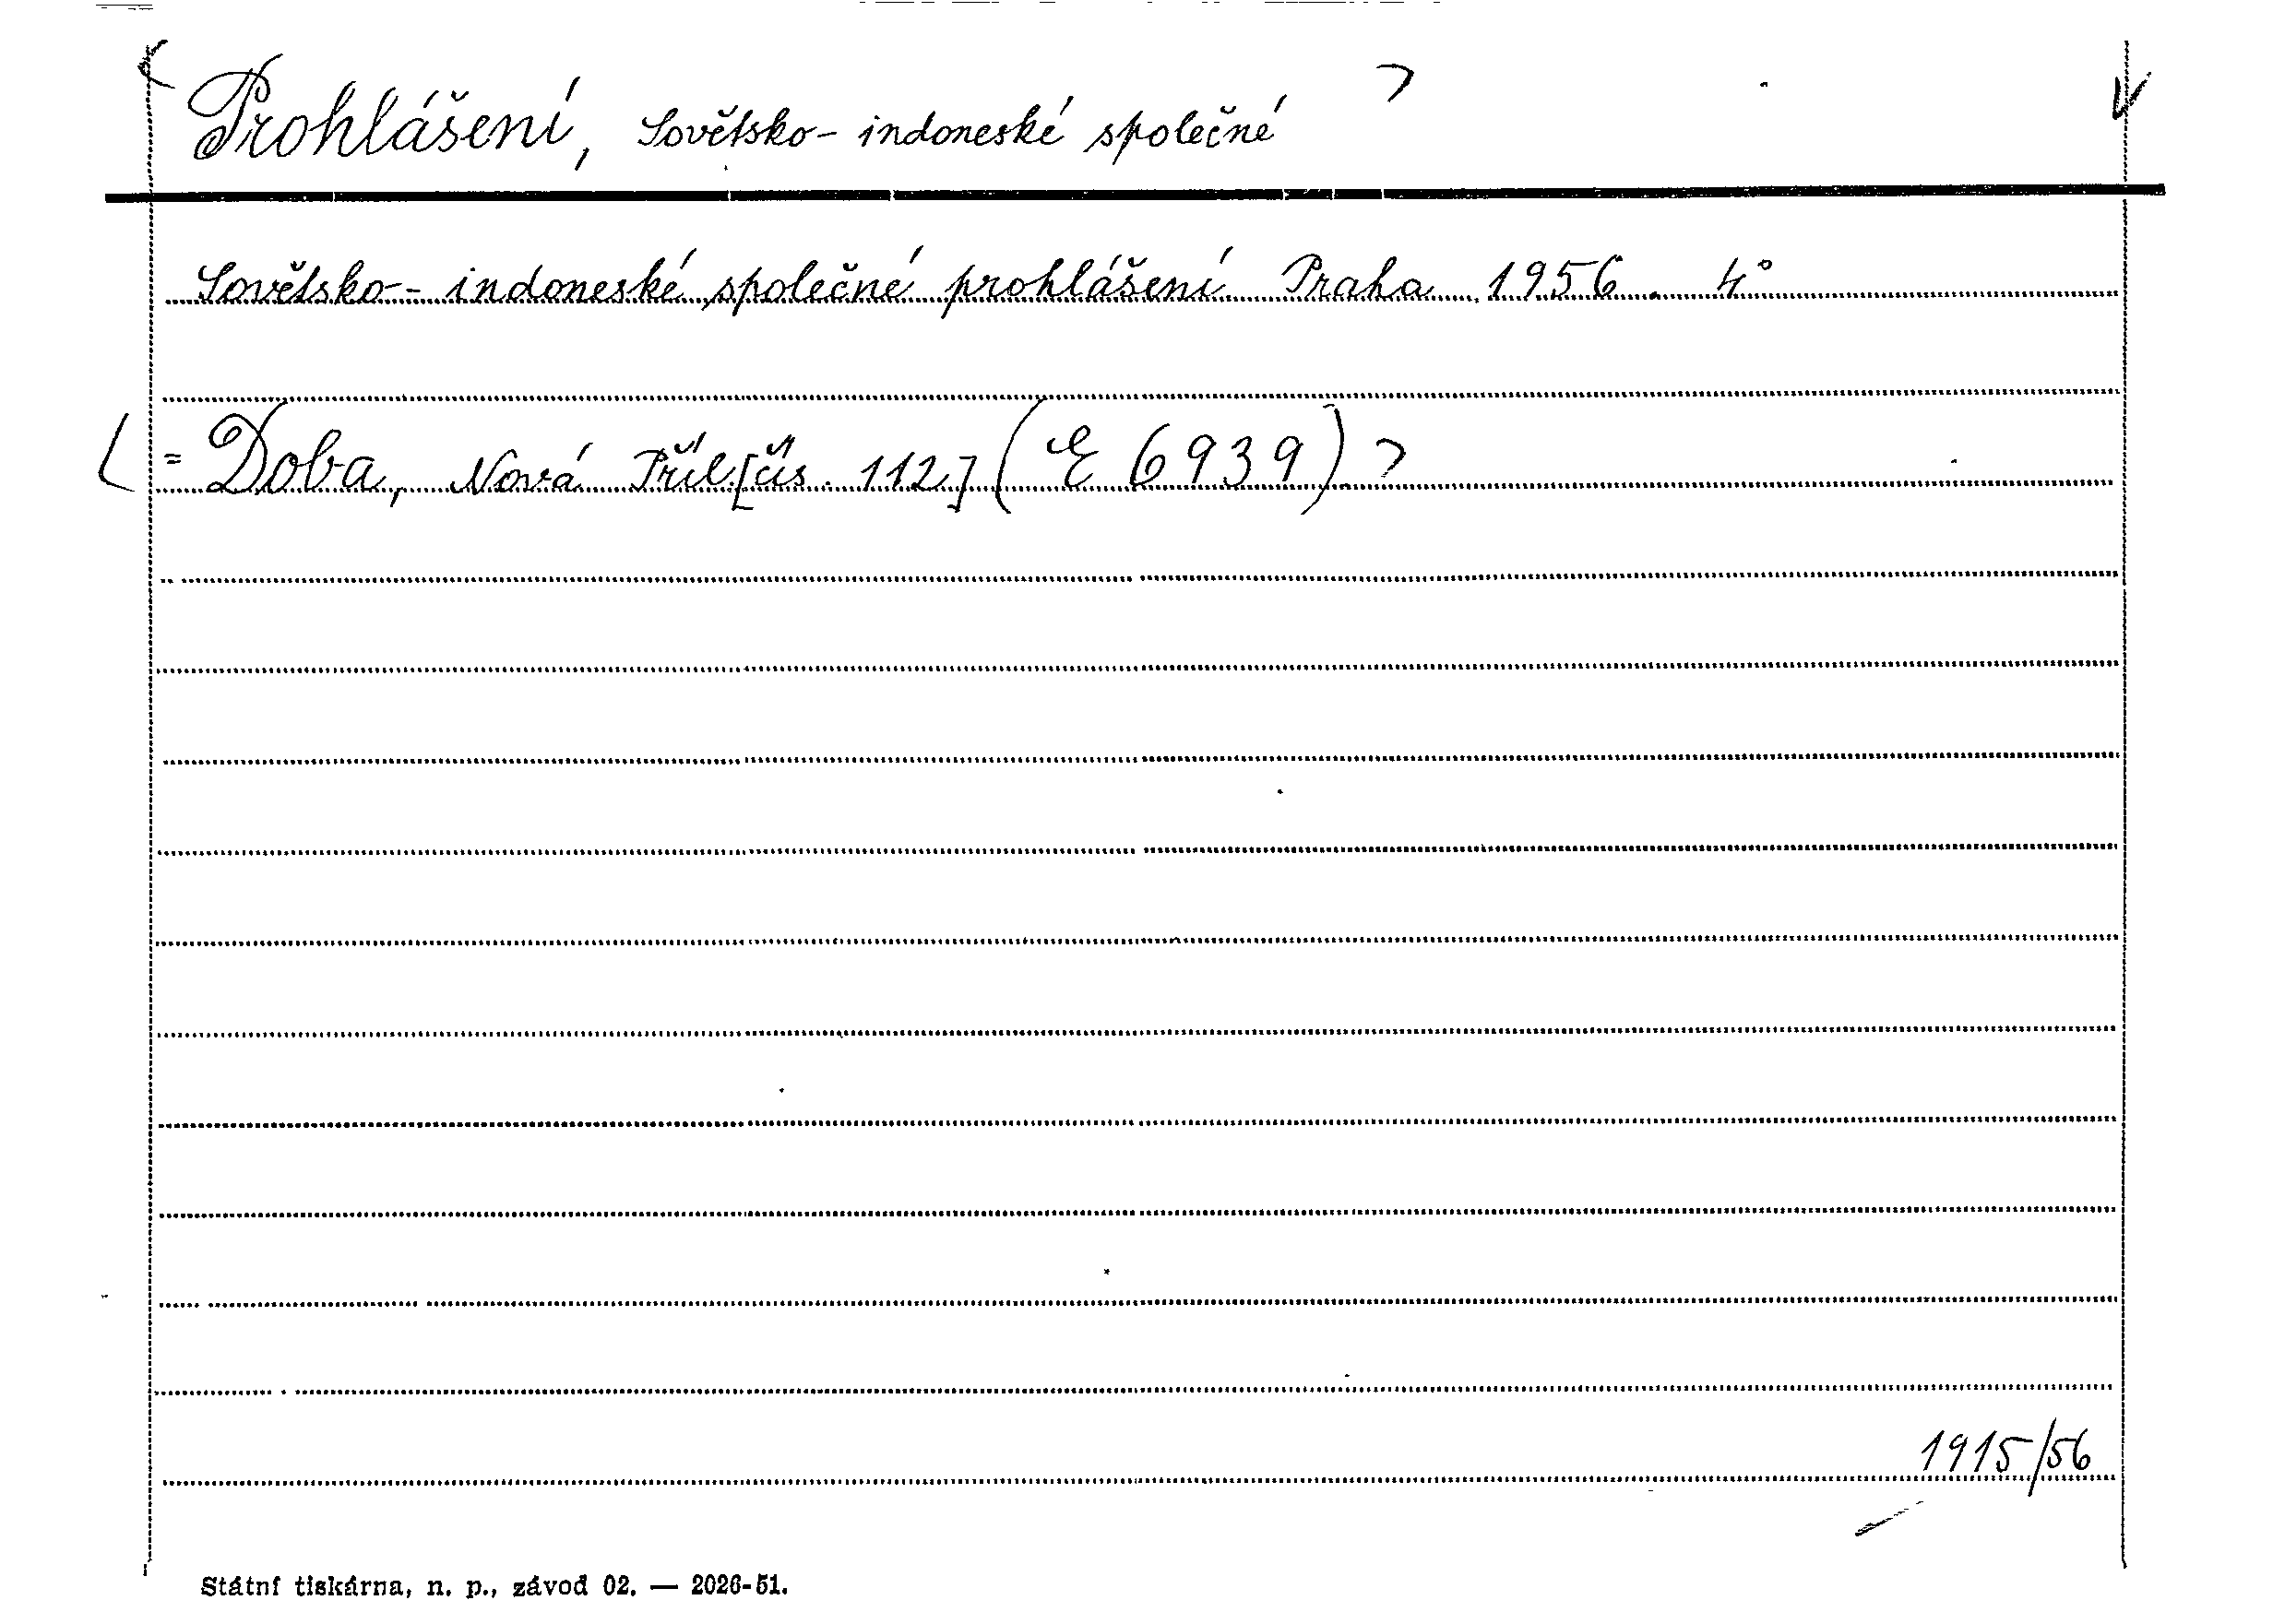 Prohlášení, Sovětsko-indoneské společné
Sovětsko-indoneské společné prohlášení. Praha 1956. 4°
= Doba, Nová Příl. [čís. 112] (E 6939)
1915/56
Státní tiskárna, n. p., závod 02. — 2026-51.